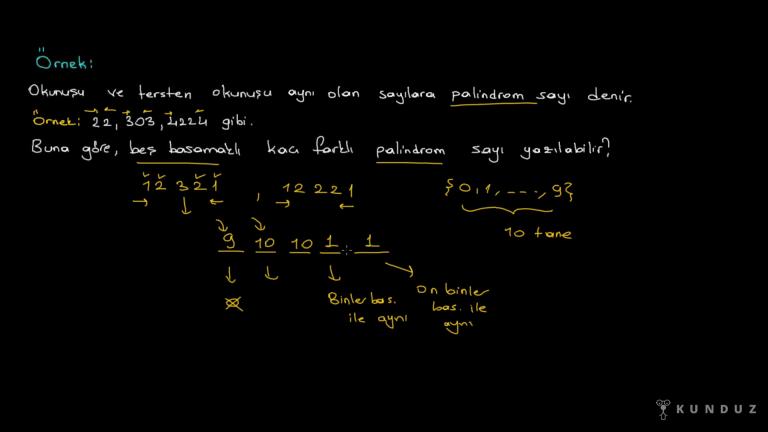 Örnek:
Okunuşu ve tersten okunuşu aynı olan sayılara palindrom sayı denir.
Örnek: 22, 303, 4224 gibi.
Buna göre, beş basamaklı kaç farklı palindrom sayı yazılabilir?
12321 , 12221 {0,1,---,9}
10 tane
9 10 10 1 1
Binler bas. ile aynı
On binler bas. ile aynı
KUNDUZ